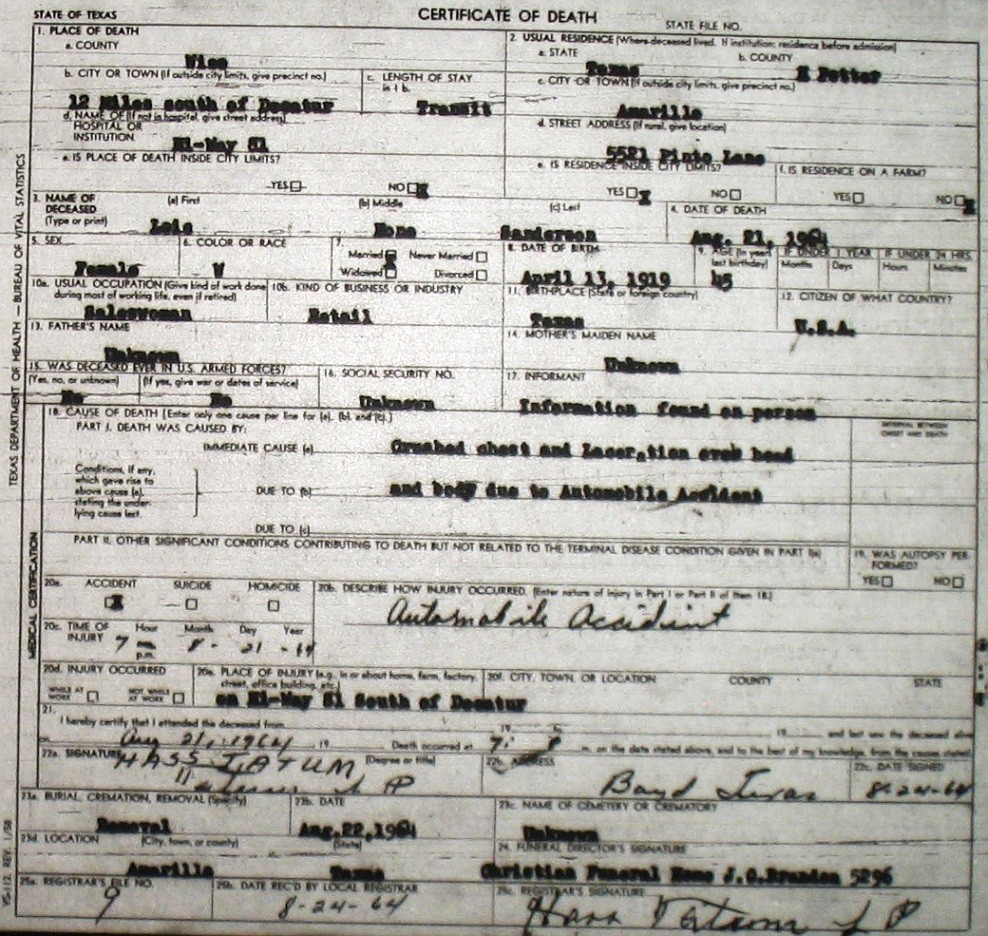 STATE OF TEXAS
CERTIFICATE OF DEATH
STATE FILE NO.
1. PLACE OF DEATH
a. COUNTY
Wise
2. USUAL RESIDENCE (Where deceased lived. If institution: residence before admission)
a. STATE
Texas
b. COUNTY
Potter
b. CITY OR TOWN (If outside city limits, give precinct no.)
12 Miles south of Decatur
c. LENGTH OF STAY in 1 b.
Transit
c. CITY OR TOWN (If outside city limits, give precinct no.)
Amarillo
d. NAME OF (If not in hospital, give street address)
HOSPITAL OR
INSTITUTION
Hi-Way 81
d. STREET ADDRESS (If rural, give location)
5521 Pinto Lane
e. IS PLACE OF DEATH INSIDE CITY LIMITS?
YES NO X
e. IS RESIDENCE INSIDE CITY LIMITS?
YES X NO
f. IS RESIDENCE ON A FARM?
YES NO X
3. NAME OF
DECEASED
(Type or print)
(a) First
Lois
(b) Middle
None
(c) Last
Sanderson
4. DATE OF DEATH
Aug. 21, 1964
5. SEX
Female
6. COLOR OR RACE
W
7.
Married Never Married
Widowed Divorced
8. DATE OF BIRTH
April 13, 1919
9. AGE (In years last birthday)
45
IF UNDER 1 YEAR
Months Days
IF UNDER 24 HRS.
Hours Minutes
10a. USUAL OCCUPATION (Give kind of work done
during most of working life, even if retired)
Saleswoman
10b. KIND OF BUSINESS OR INDUSTRY
Retail
11. BIRTHPLACE (State or foreign country)
Texas
12. CITIZEN OF WHAT COUNTRY?
U.S.A.
13. FATHER'S NAME
Unknown
14. MOTHER'S MAIDEN NAME
Unknown
15. WAS DECEASED EVER IN U.S. ARMED FORCES?
(Yes, no, or unknown)
No
(If yes, give war or dates of service)
No
16. SOCIAL SECURITY NO.
Unknown
17. INFORMANT
Information found on person
18. CAUSE OF DEATH [Enter only one cause per line for (a), (b), and (c).]
PART I. DEATH WAS CAUSED BY:
INTERVAL BETWEEN
ONSET AND DEATH
IMMEDIATE CAUSE (a)
Crushed chest and Laceration over head
Conditions, if any,
which gave rise to
above cause (a),
stating the under-
lying cause last.
DUE TO (b)
and body due to Automobile Accident
DUE TO (c)
PART II. OTHER SIGNIFICANT CONDITIONS CONTRIBUTING TO DEATH BUT NOT RELATED TO THE TERMINAL DISEASE CONDITION GIVEN IN PART I(a)
19. WAS AUTOPSY PER-
FORMED?
YES NO
20a.
ACCIDENT SUICIDE HOMICIDE
X
20b. DESCRIBE HOW INJURY OCCURRED. (Enter nature of injury in Part I or Part II of Item 18.)
Automobile Accident
20c. TIME OF
INJURY
Hour Month Day Year
7 p.m. 8 - 21 - 64
20d. INJURY OCCURRED
WHILE AT
WORK
NOT WHILE
AT WORK
20e. PLACE OF INJURY (e.g., in or about home, farm, factory,
street, office building, etc.)
on Hi-Way 81 South of Decatur
20f. CITY, TOWN, OR LOCATION COUNTY STATE
21.
I hereby certify that I attended the deceased from 19 19 and last saw the deceased alive
on Aug 21, 1964 19 Death occurred at 7: P m. on the date stated above, and to the best of my knowledge, from the causes stated.
22a. SIGNATURE (Degree or title)
HASS TATUM
Tatum J P
22b. ADDRESS
Boyd Texas
22c. DATE SIGNED
8-24-64
23a. BURIAL, CREMATION, REMOVAL (Specify)
Removal
23b. DATE
Aug. 22, 1964
23c. NAME OF CEMETERY OR CREMATORY
Unknown
23d. LOCATION (City, town, or county) (State)
Amarillo Texas
24. FUNERAL DIRECTOR'S SIGNATURE
Christian Funeral Home J.O.Brunden 5296
25a. REGISTRAR'S FILE NO.
9
25b. DATE REC'D BY LOCAL REGISTRAR
8-24-64
25c. REGISTRAR'S SIGNATURE
Hass Tatum J P
TEXAS DEPARTMENT OF HEALTH — BUREAU OF VITAL STATISTICS
MEDICAL CERTIFICATION
VS-112 REV. 1/58